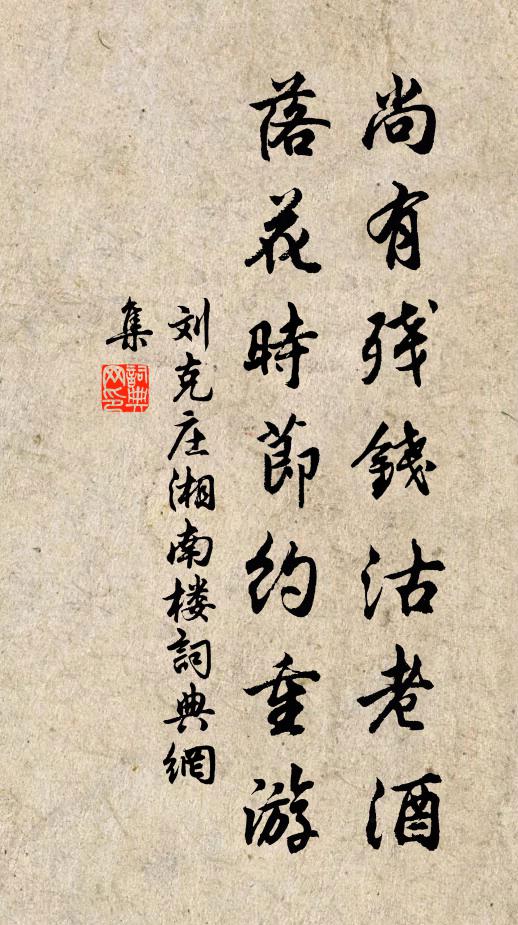 尚有残錢沽老酒
落花時節約重游
刘克庄湘南楼詞典網
集
詞典網印